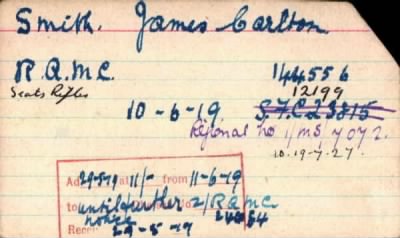 Smith. James Carlton
R.A.M.C. 144556
Scots Rifles 12199
10-6-19 S.F.C. 23815
Regional No 1/MS/7072.
10.19-7-27.
Ad 29-5-19 at 11/- from 11-6-19
to until further 2/R.A.M.C.
notice
Rece 29-5-19